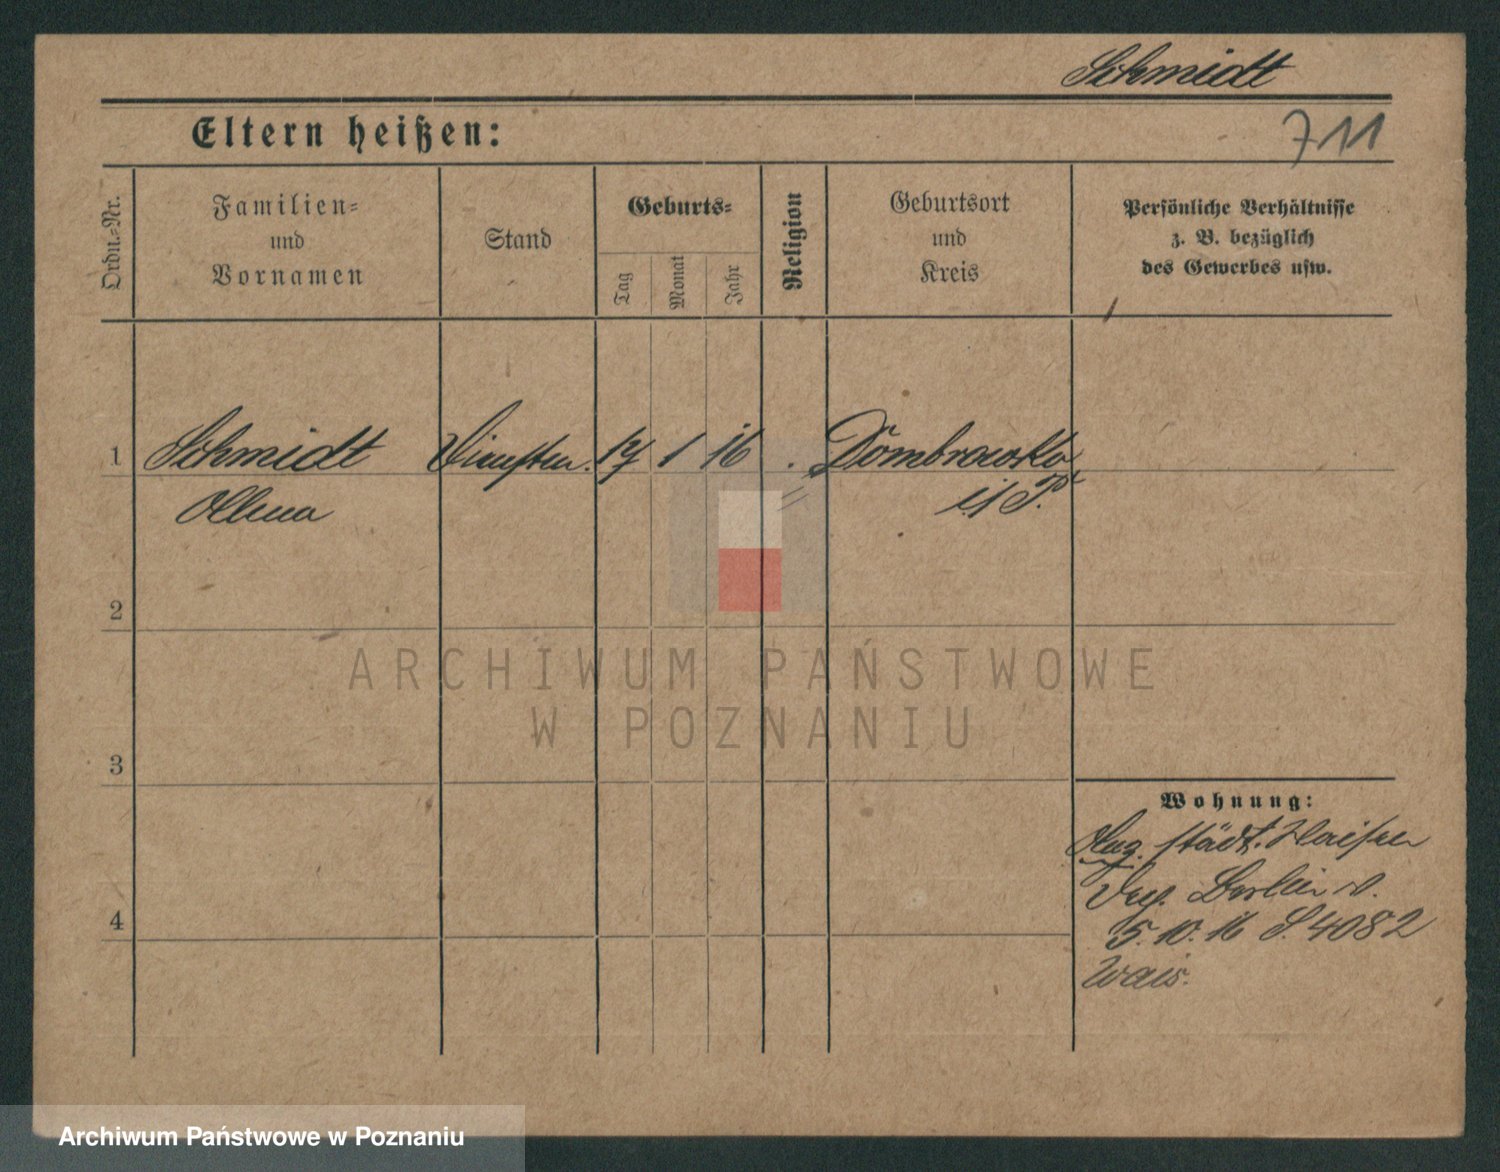 Schmidt
Eltern heißen:
711
Ordn.-Nr.
Familien-
und
Vornamen
Stand
Geburts-
Tag
Monat
Jahr
Religion
Geburtsort
und
Kreis
Persönliche Verhältnisse
z. B. bezüglich
des Gewerbes usw.
1
Schmidt
17 1 16
Dombrowska
i/P.
2
3
4
Wohnung:
städt. Waisen
Berlin v.
5.10.16 S. 4082
Wais.
ARCHIWUM PAŃSTWOWE
W POZNANIU
Archiwum Państwowe w Poznaniu